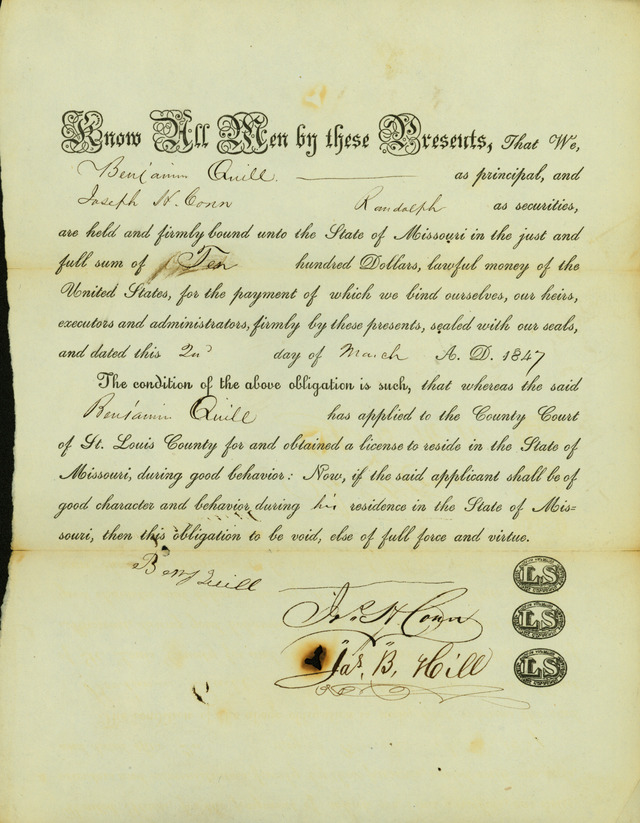 Know All Men by these Presents, That We,
Benjamin Quill. as principal, and
Joseph H. Conn Randolph as securities,
are held and firmly bound unto the State of Missouri in the just and
full sum of Ten hundred Dollars, lawful money of the
United States, for the payment of which we bind ourselves, our heirs,
executors and administrators, firmly by these presents, sealed with our seals,
and dated this 2nd day of March A. D. 1847
The condition of the above obligation is such, that whereas the said
Benjamin Quill has applied to the County Court
of St. Louis County for and obtained a license to reside in the State of
Missouri, during good behavior: Now, if the said applicant shall be of
good character and behavior during his residence in the State of Mis=
souri, then this obligation to be void, else of full force and virtue.
Benj Quill
LS
Jos. H Conn
LS
Jas. B. Hill
LS